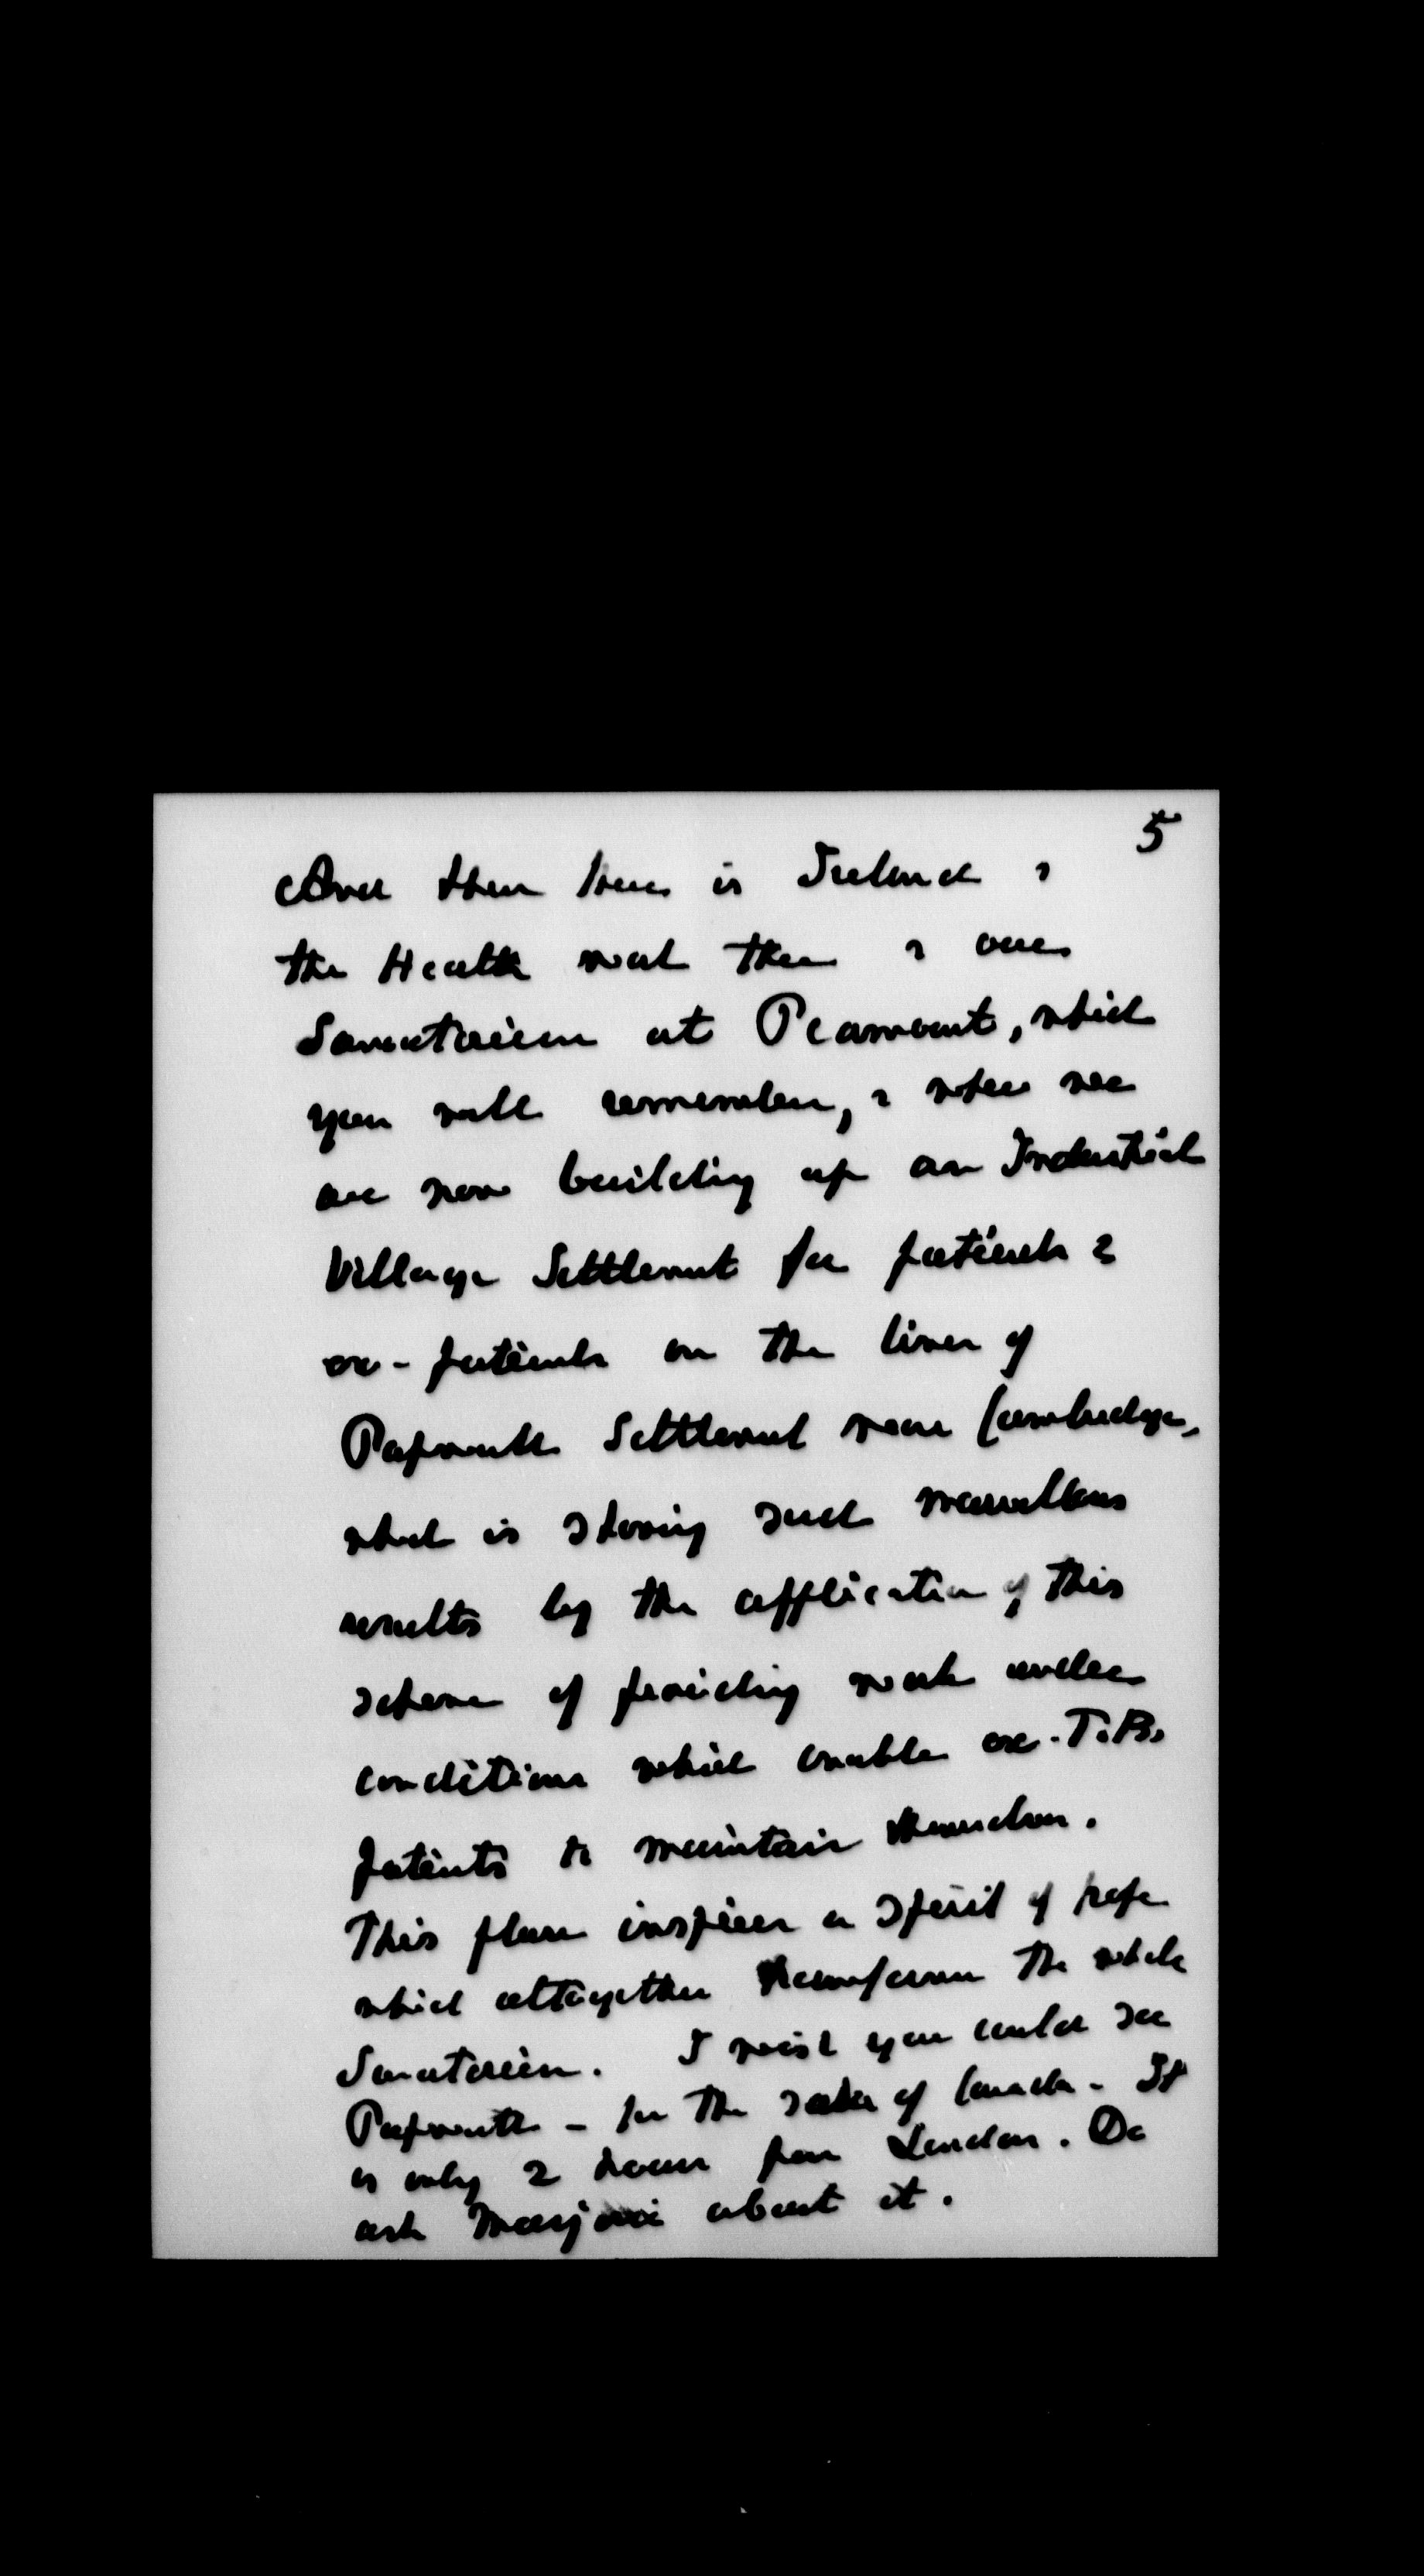 5
And then there is Ireland &
the Health work there & our
Sanatorium at Peamount, which
you will remember, & where we
are now building up an Industrial
Village Settlement for patients &
ex-patients on the lines of
Papworth Settlement near Cambridge,
which is showing such marvellous
results by the application of this
scheme of providing work under
conditions which enable ex-T.B.
patients to maintain themselves.
This plan inspires a spirit of hope
which altogether transforms the whole
Sanatorium. I wish you could see
Papworth - for the sake of Canada - It
is only 2 hours from London. Do
ask Marjorie about it.